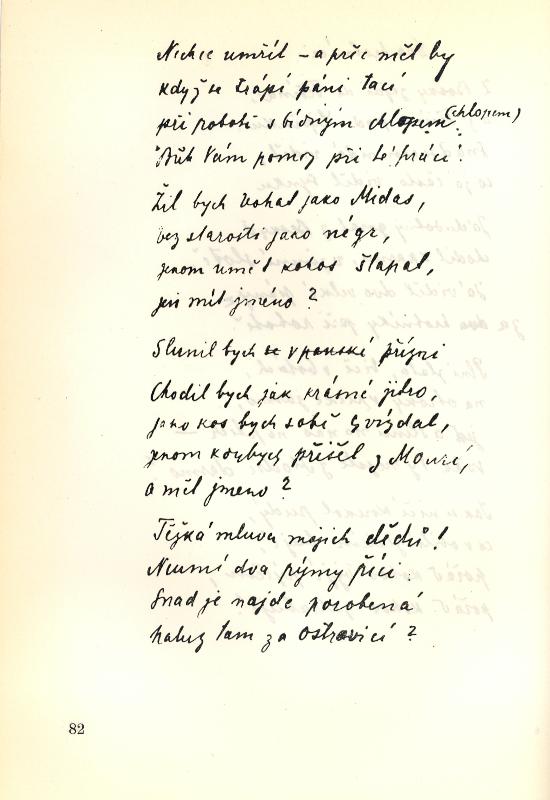 Nechce umřít – a přec měl by
když se trápí páni tací
při robotě s bídným chlopem (chlopem)
"Bůh Vám pomoz při té práci".
Žil bych bohat jako Midas,
bez starosti jako négr,
jenom umět kohos šlapat,
jen mít jméno?
Slunil bych se v panské přízni
Chodil bych jak krásné jitro,
jako kos bych sobě hvízdal,
jenom kdybych přišel z
a měl jmeno?
Těžká mluva mojich dědů!
Neumí dva rýmy říci.
Snad je najde porobená
haluz tam za Ostravicí?
82